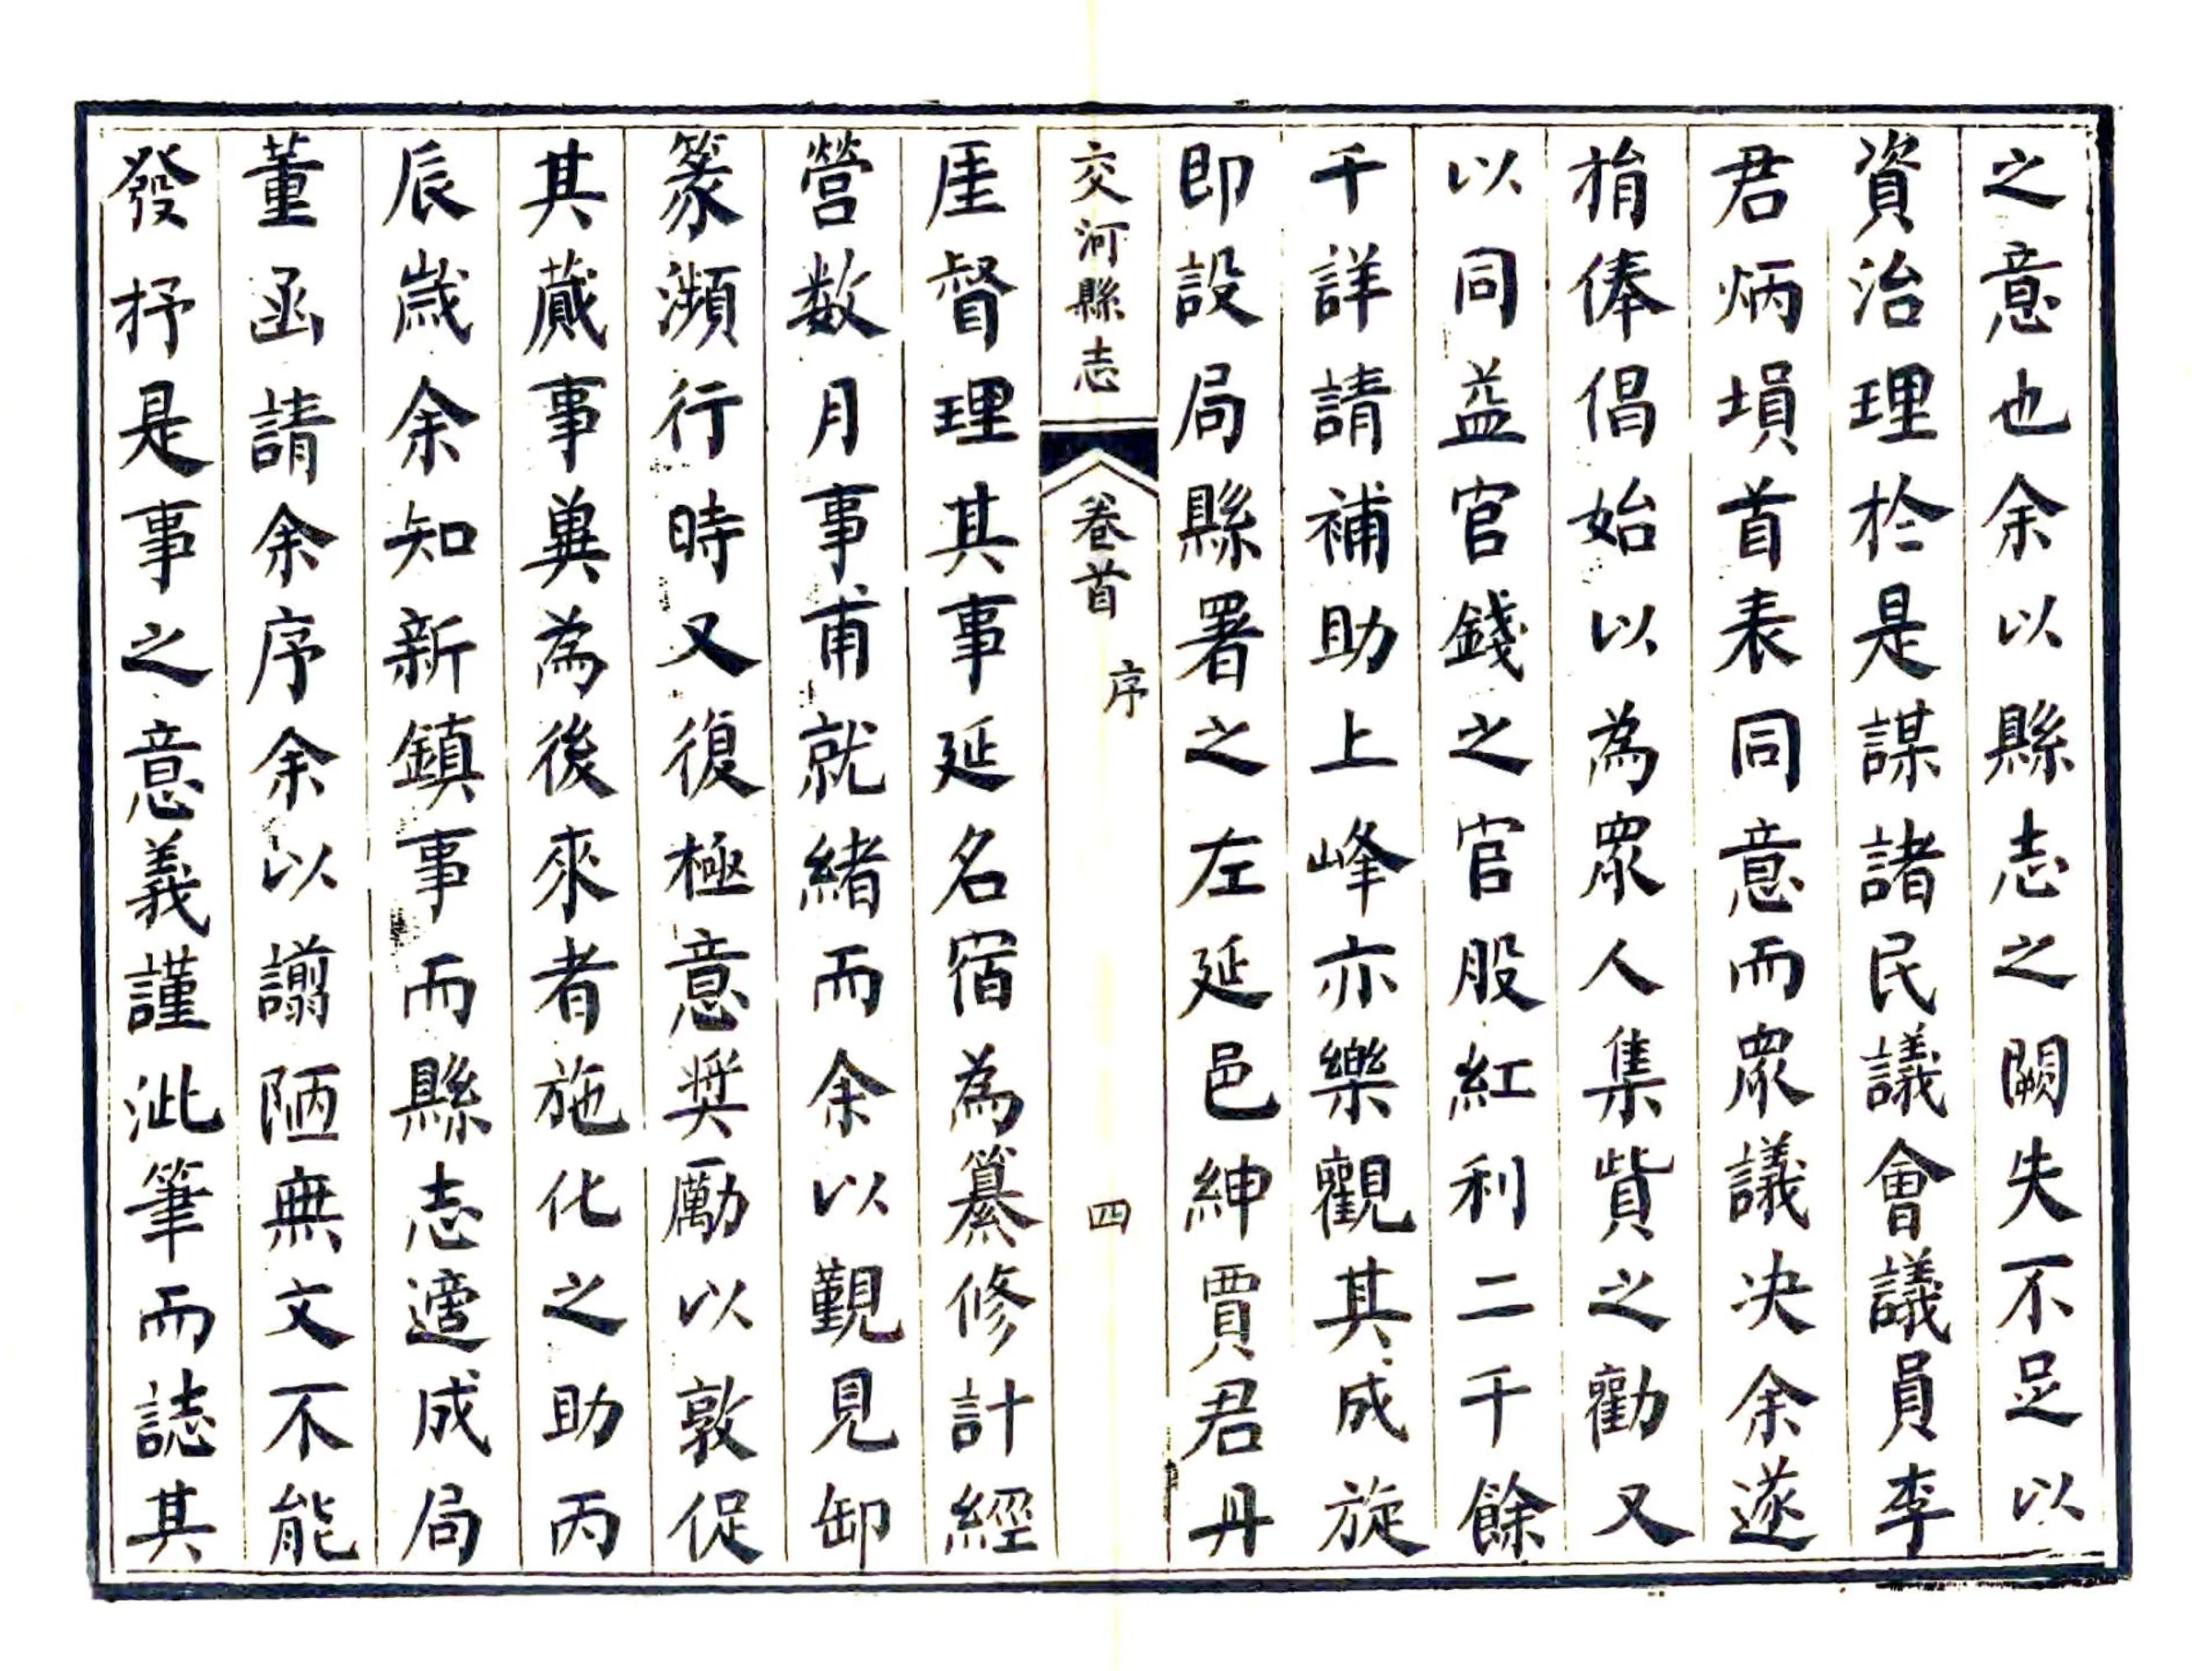 之意也余以縣志之闕失不足以
資治理於是謀諸民議會議員李
君炳塤首表同意而眾議决余遂
捐俸倡始以為眾人集貲之勸又
以同益官錢之官股紅利二千餘
千詳請補助上峰亦樂觀其成旋
即設局縣署之左延邑紳賈君丹
交河縣志 卷首 序 四
厓督理其事延名宿為纂修計經
營数月事甫就緒而余以覲見卸
篆瀕行時又復極意奨勵以敦促
其蕆事兾為後來者施化之助丙
辰歲余知新鎮事而縣志適成局
董函請余序余以謭陋無文不能
發抒是事之意義謹泚筆而誌其